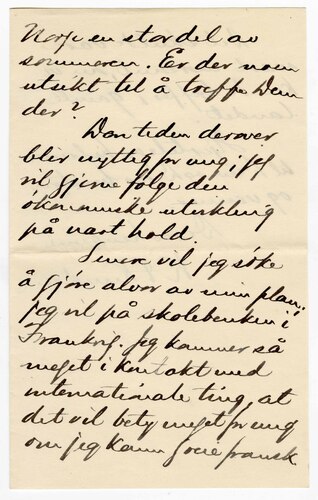 Norge en stor del av
sommeren. Er der noen
utsikt til å treffe Dem
der?
Den tiden derover
blir nyttig for mig; jeg
vil gjerne følge den
økonomiske utvikling
på nært hold.
Senere vil jeg søke
å gjøre alvor av min plan:
jeg vil på skolebenken i
Frankrig. Jeg kommer så
meget i kontakt med
internationale ting, at
det vil bety meget for mig
om jeg kan fransk.